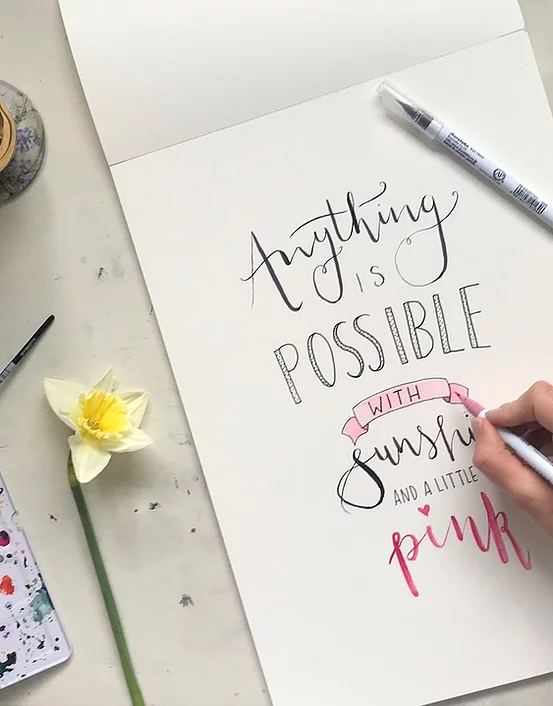 Anything
IS
POSSIBLE
WITH
AND A LITTLE
pink